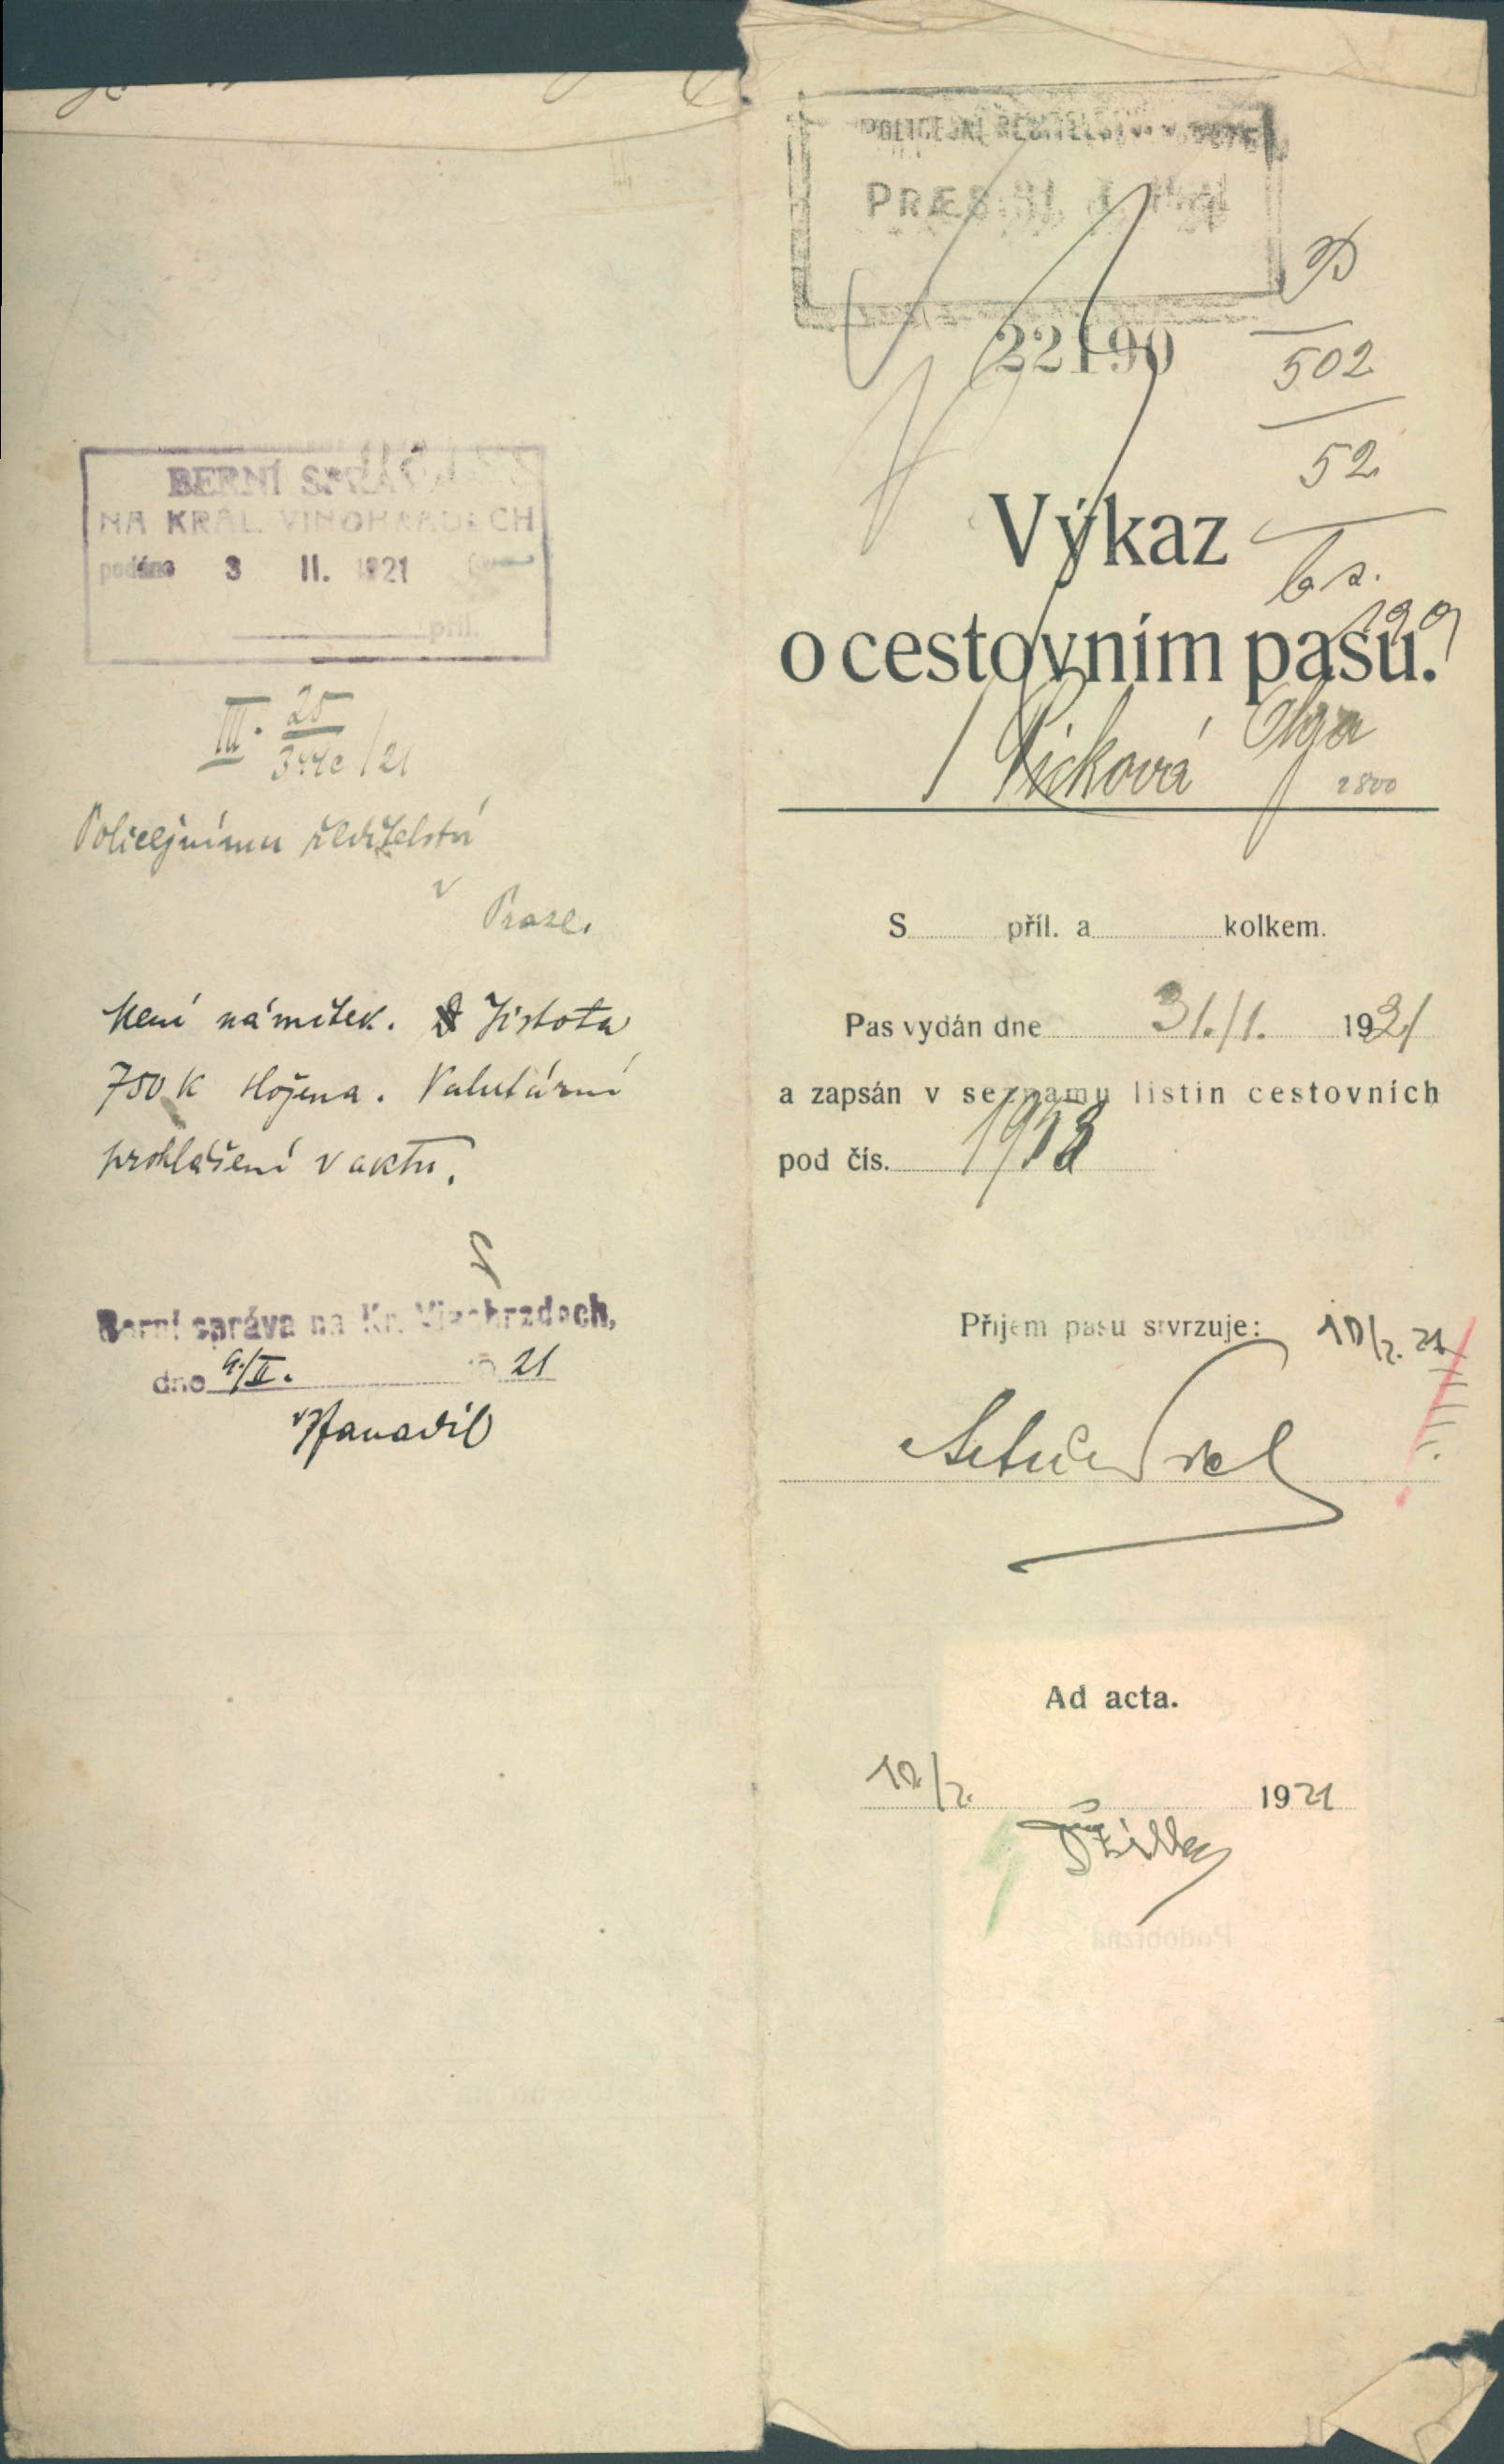 BERNÍ SPRÁVA
NA KRÁL. VINOHRADECH
podáno 3 II. 1921
příl.
III. 25
/21
Policejnímu ředitelství
v
Praze.
Není námitek. Jistota
750 K složena. Valutární
prohlášení v aktu.
Berní správa na Kr. Vinohradech,
dne 9/II. 19 21
POLICEJNÍ ŘEDITELSTVÍ V PRAZE
PRÆS.
22190
502
52
Výkaz
o cestovním pasu.
Picková Olga
2800
S příl. a kolkem.
Pas vydán dne 31./1. 1921
a zapsán v seznamu listin cestovních
pod čís.
Příjem pasu stvrzuje: 10/2. 21
Ad acta.
10./2. 1921
Podobizna